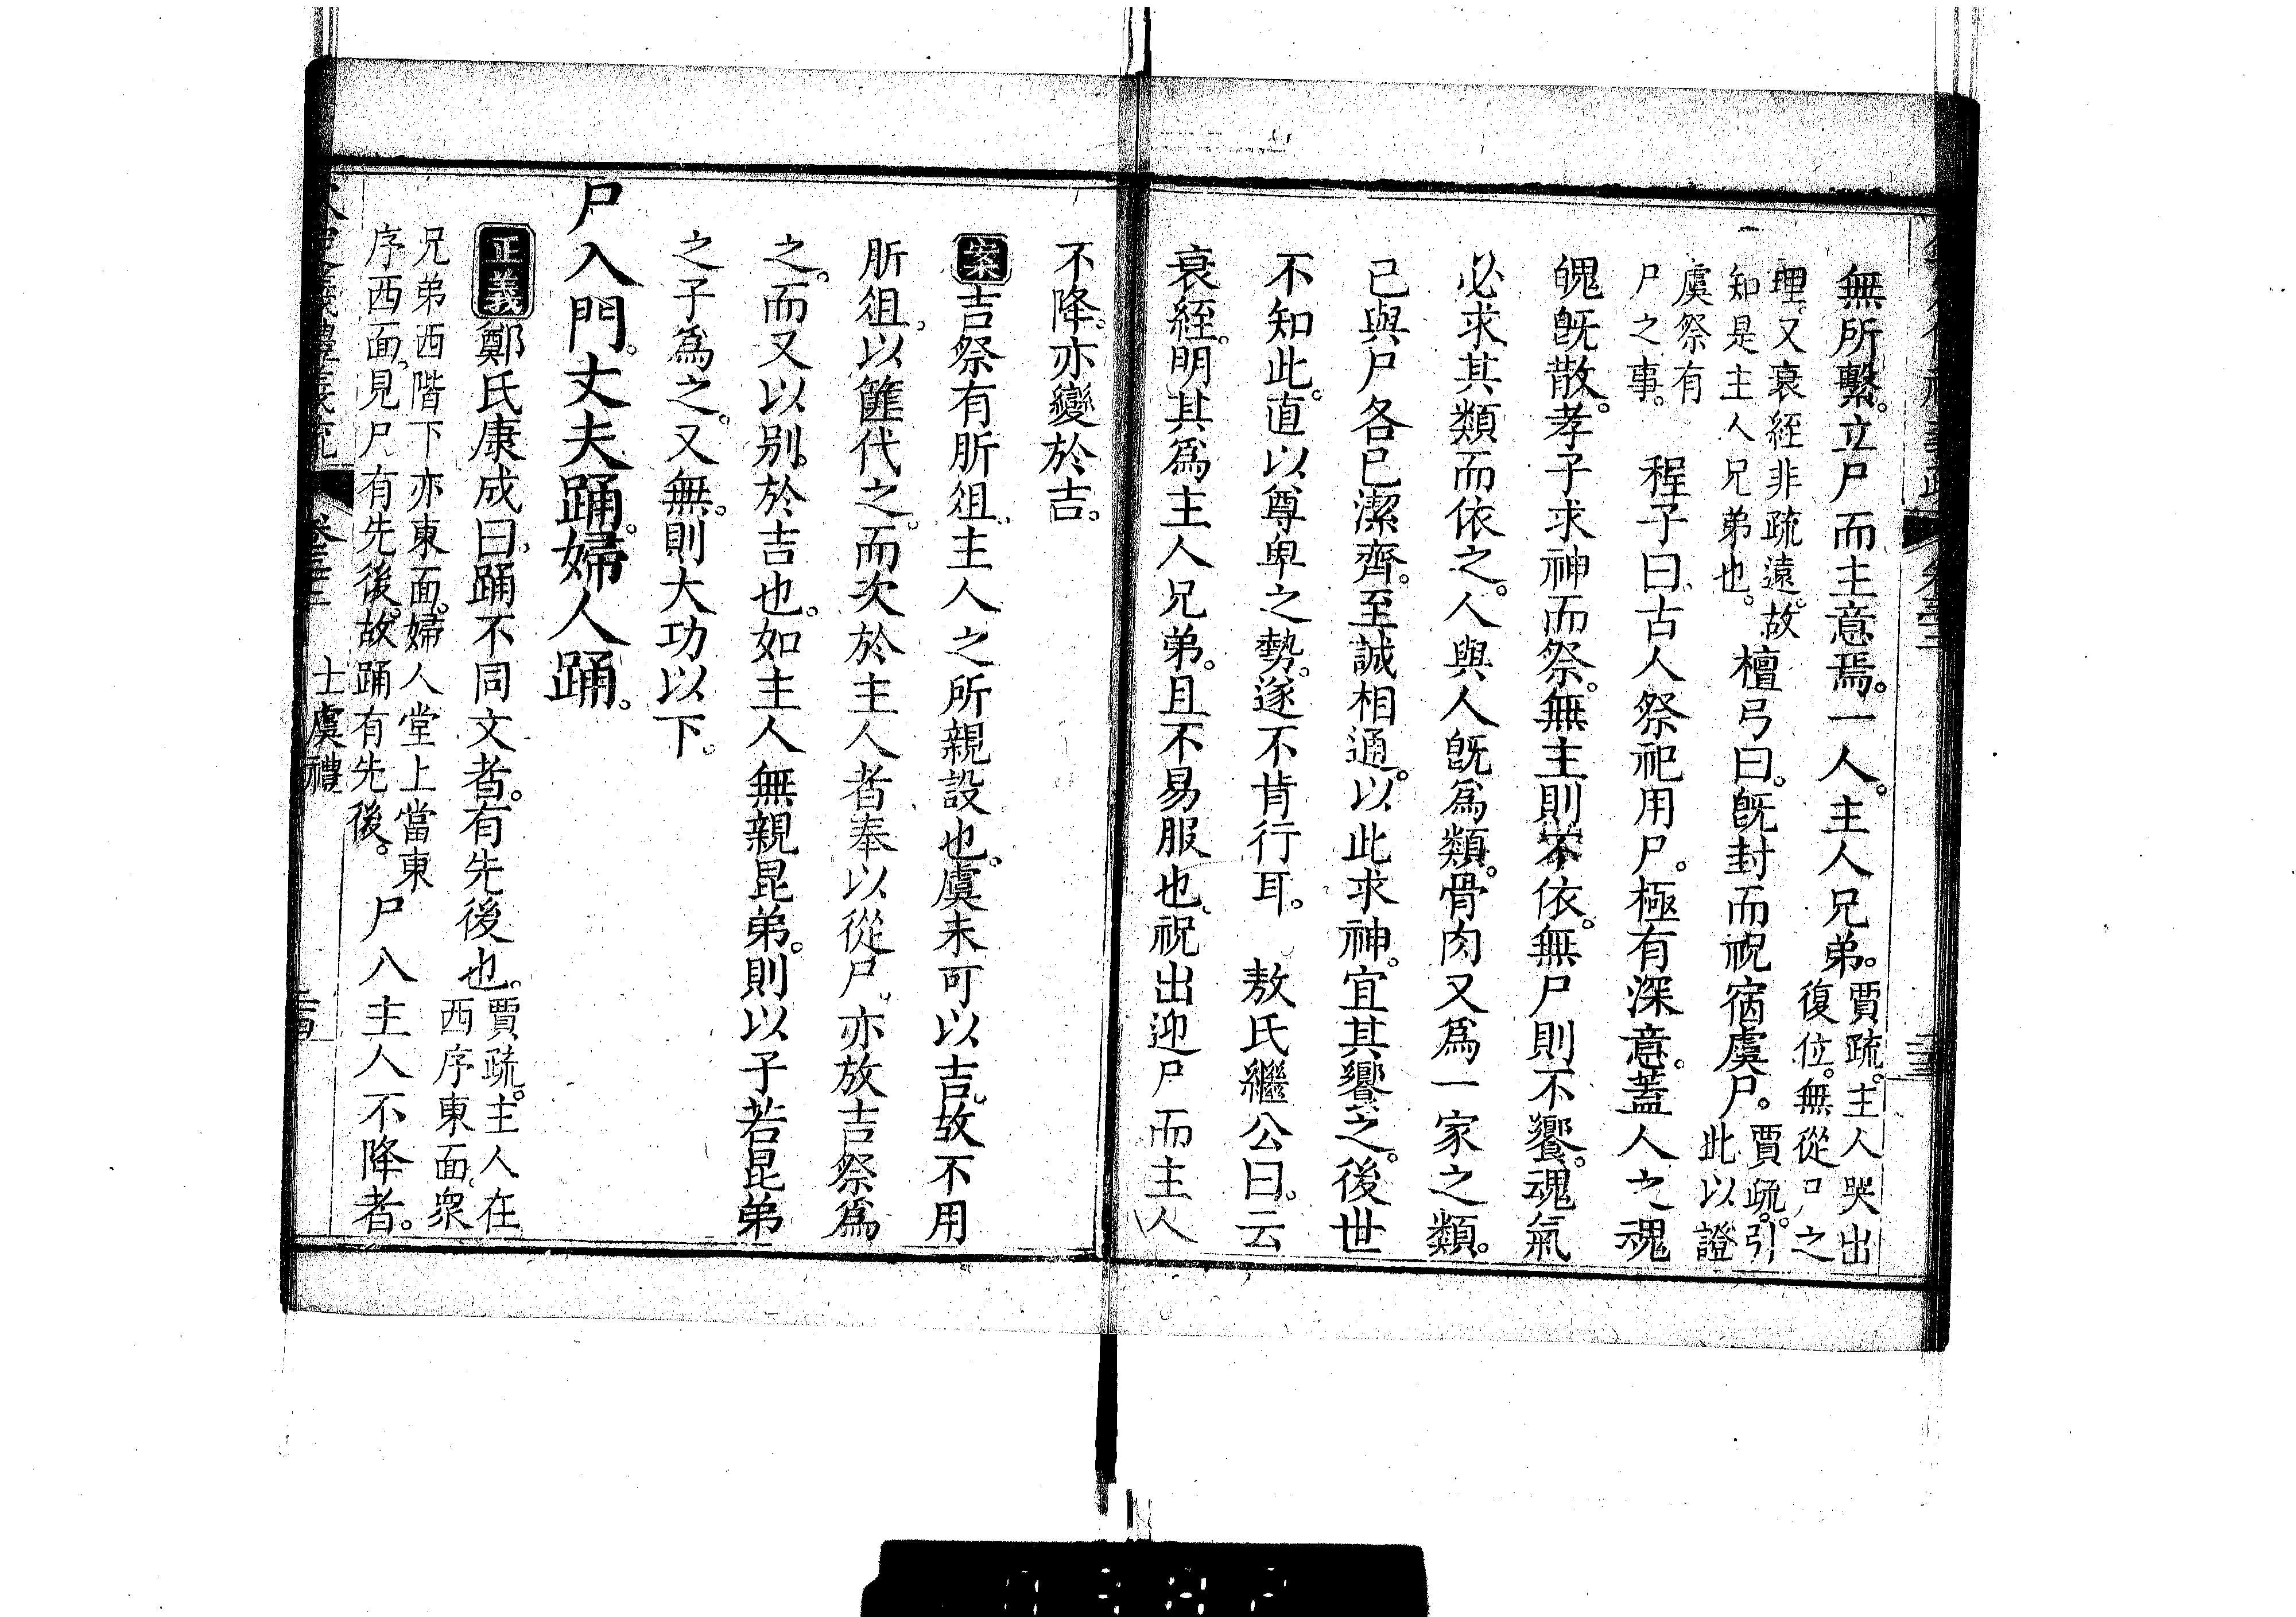 無所繫。立尸而主意焉。一人。主人兄弟。賈疏。主人哭出復位。無從尸之
理。又衰絰非疏遠。故知是主人兄弟也。檀弓曰。旣封而祝宿虞尸。賈疏。引此以證
虞祭有尸之事。程子曰、古人祭祀用尸。極有深意。蓋人之魂
魄旣散。孝子求神而祭。無主則不依。無尸則不饗。魂氣
必求其類而依之。人與人旣爲類。骨肉又爲一家之類。
已與尸各已潔齊。至誠相通。以此求神。宜其饗之。後世
不知此。直以尊卑之勢。遂不肯行耳。敖氏繼公曰。云
衰絰。明其爲主人兄弟。且不易服也。祝出迎尸而主人
不降。亦變於吉。
案吉祭有肵俎。主人之所親設也。虞未可以吉。故不用
肵俎。以篚代之。而次於主人者奉以從尸。亦放吉祭爲
之。而又以别於吉也。如主人無親昆弟。則以子若昆弟
之子爲之。又無。則大功以下。
尸入門。丈夫踊。婦人踊。
正義鄭氏康成曰、踊不同文者。有先後也。賈疏。主人在西序東面。衆
兄弟西階下亦東面。婦人堂上當東序西面。見尸有先後。故踊有先後。尸入主人不降者。
士虞禮